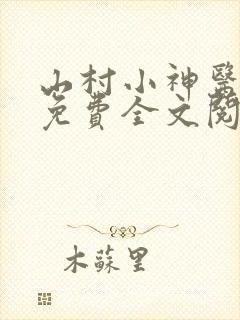 山村小神醫
免費全文閱
木蘇里